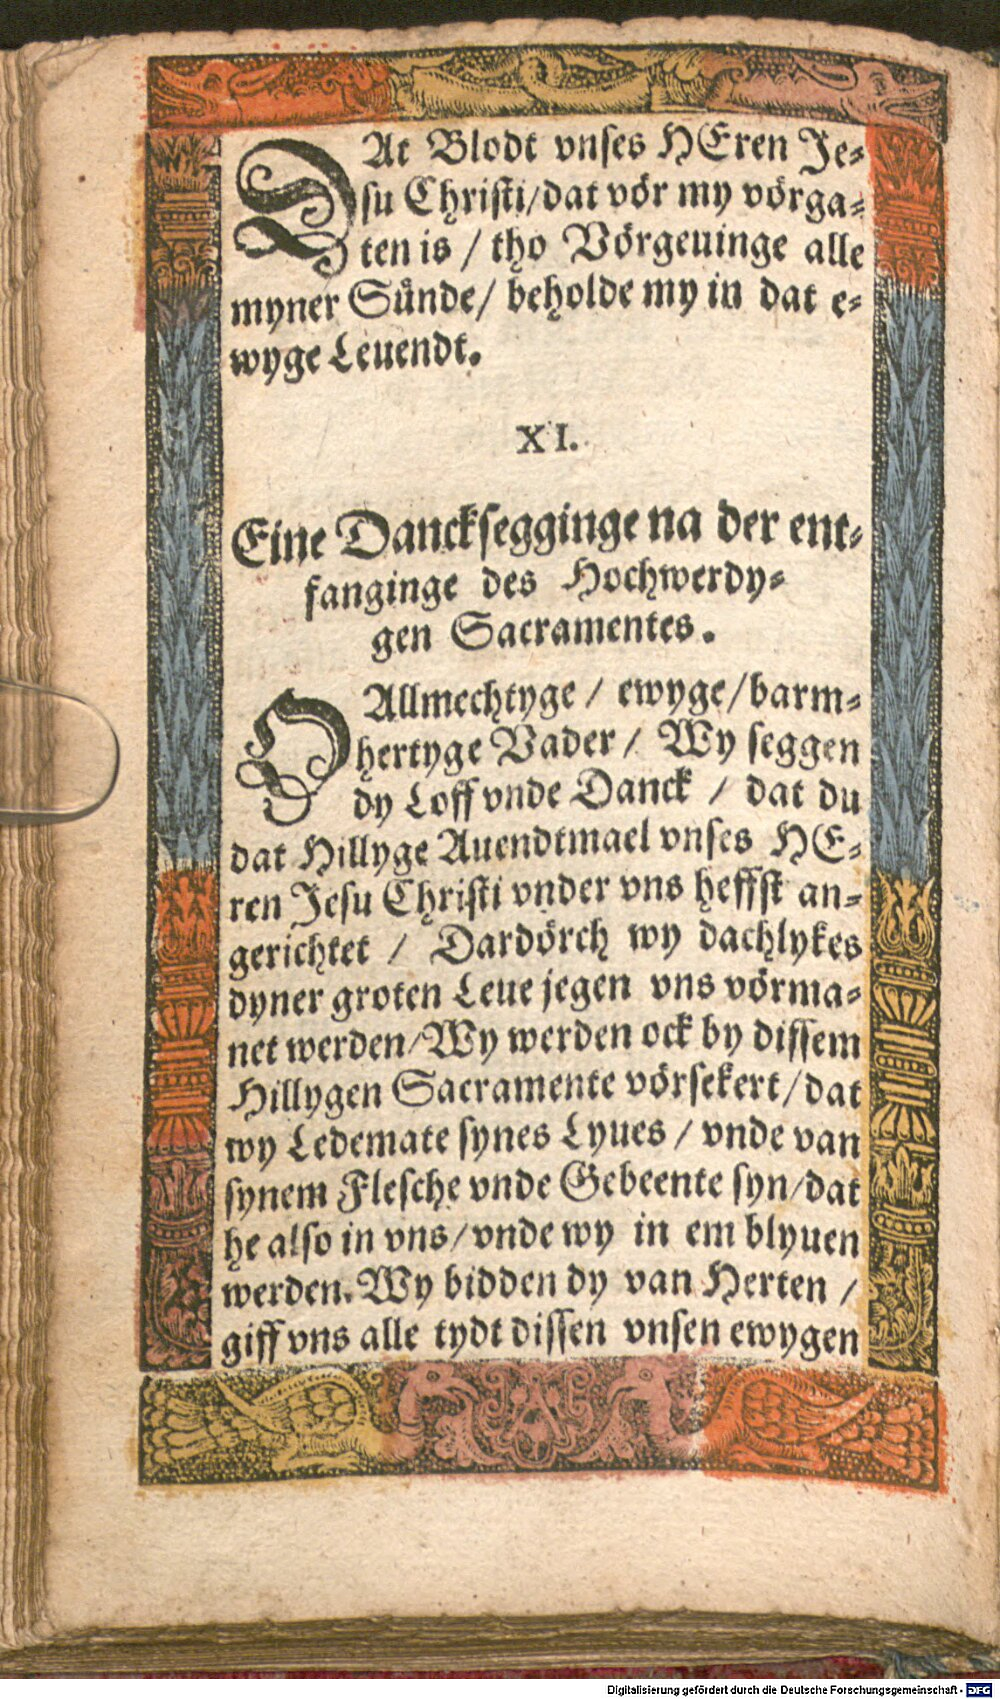 DAt Blodt vnses HEren Je-
su Christi/dat vör my vörga-
ten is / tho Vörgeuinge alle
myner Sünde/ beholde my in dat e-
wyge Leuendt.
XI.
Eine Dancksegginge na der ent-
fanginge des Hochwerdy-
gen Sacramentes.
O Allmechtyge / ewyge/barm-
hertyge Vader / Wy seggen
dy Loff vnde Danck / dat du
dat Hillyge Auendtmael vnses HE-
ren Jesu Christi vnder vns heffst an-
gerichtet / Dardörch wy dachlykes
dyner groten Leue jegen vns vörma-
net werden/Wy werden ock by dissem
Hillygen Sacramente vörsekert/dat
wy Ledemate synes Lyues / vnde van
synem Flesche vnde Gebeente syn/dat
he also in vns/vnde wy in em blyuen
werden. Wy bidden dy van Herten /
giff vns alle tydt dissen vnsen ewygen
Digitalisierung gefördert durch die Deutsche Forschungsgemeinschaft - DFG